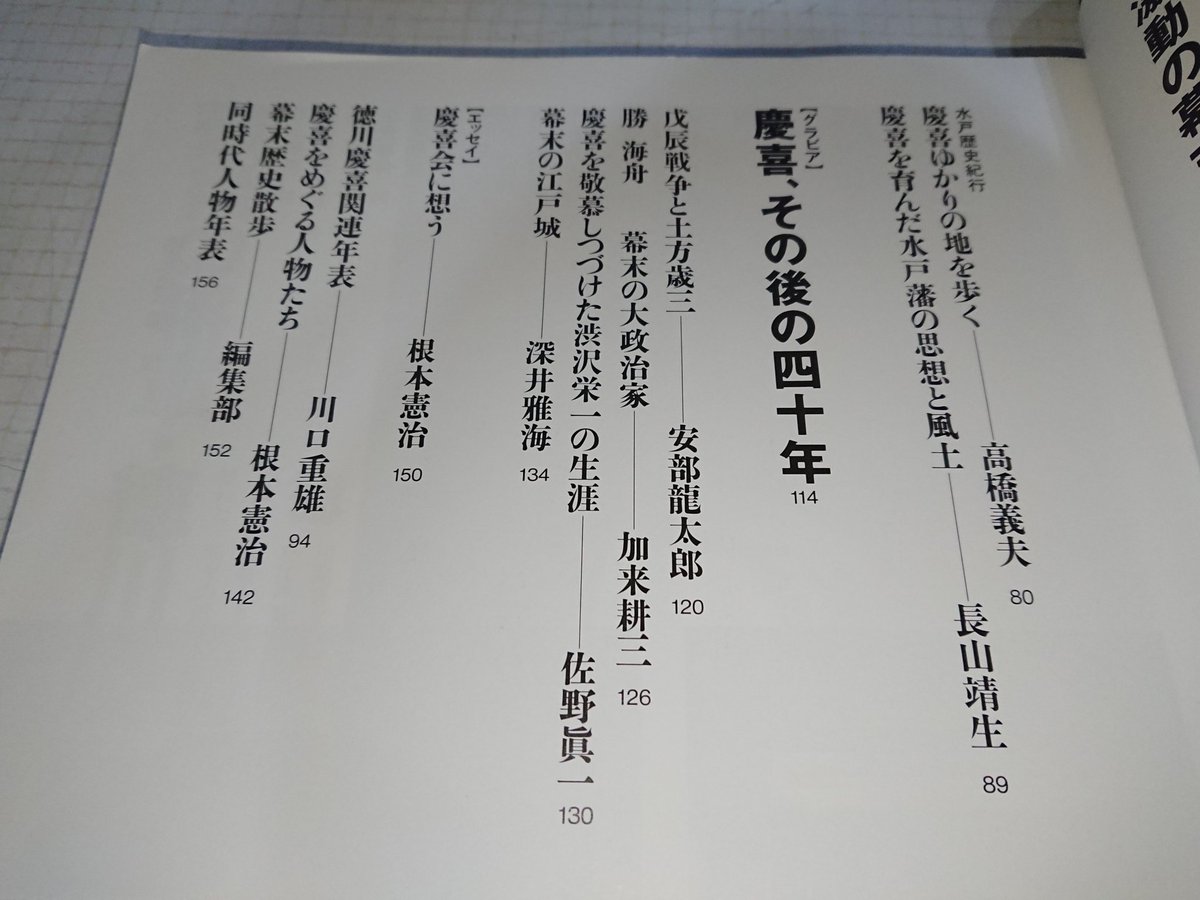 動の幕
水戸歴史紀行
慶喜ゆかりの地を歩く──高橋義夫 80
慶喜を育んだ水戸藩の思想と風土──長山靖生 89
【グラビア】
慶喜、その後の四十年 114
戊辰戦争と土方歳三──安部龍太郎 120
勝 海舟 幕末の大政治家──加来耕三 126
慶喜を敬慕しつづけた渋沢栄一の生涯──佐野眞一 130
幕末の江戸城──深井雅海 134
【エッセイ】
慶喜会に想う──根本憲治 150
徳川慶喜関連年表──川口重雄 94
慶喜をめぐる人物たち──根本憲治 142
幕末歴史散歩──編集部 152
同時代人物年表 156